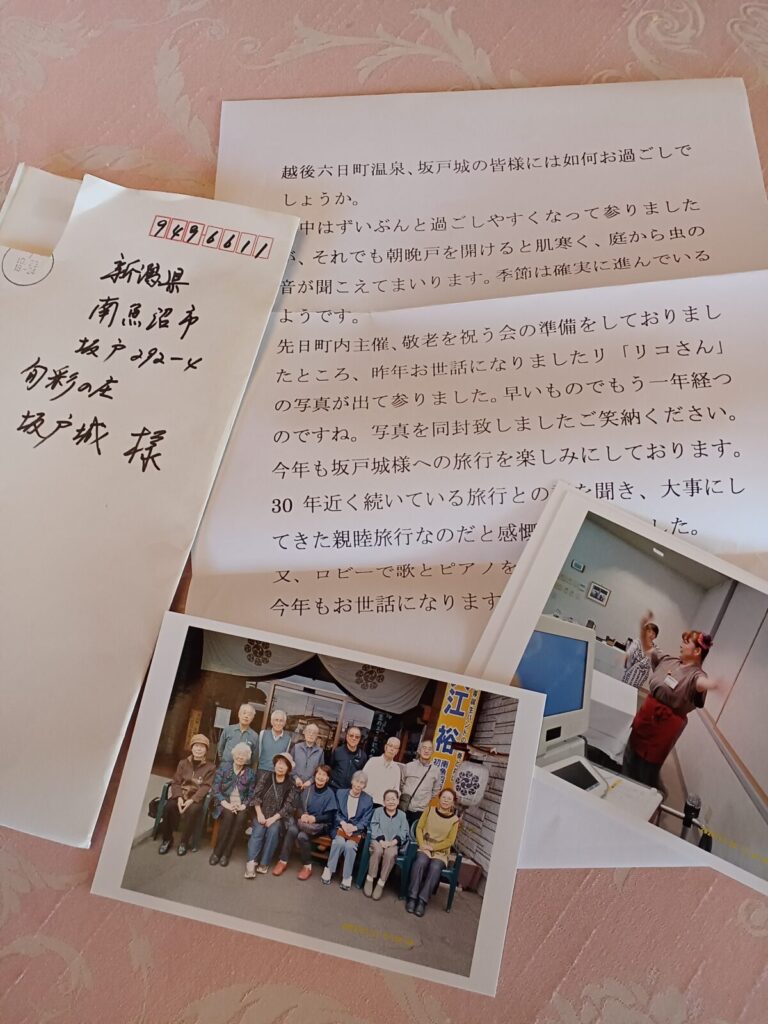 9496611
新潟県
南魚沼市
坂戸292-4
旬彩の庄
坂戸城 様
越後六日町温泉、坂戸城の皆様には如何お過ごしで
しょうか。
中はずいぶんと過ごしやすくなって参りました
、それでも朝晩戸を開けると肌寒く、庭から虫の
音が聞こえてまいります。季節は確実に進んでいる
ようです。
先日町内主催、敬老を祝う会の準備をしておりまし
たところ、昨年お世話になりましたリ「リコさん」
の写真が出て参りました。早いものでもう一年経つ
のですね。写真を同封致しましたご笑納ください。
今年も坂戸城様への旅行を楽しみにしております。
30 年近く続いている旅行との を聞き、大事にし
てきた親睦旅行なのだと感慨 した。
又、ロビーで歌とピアノを
今年もお世話になります
江 裕